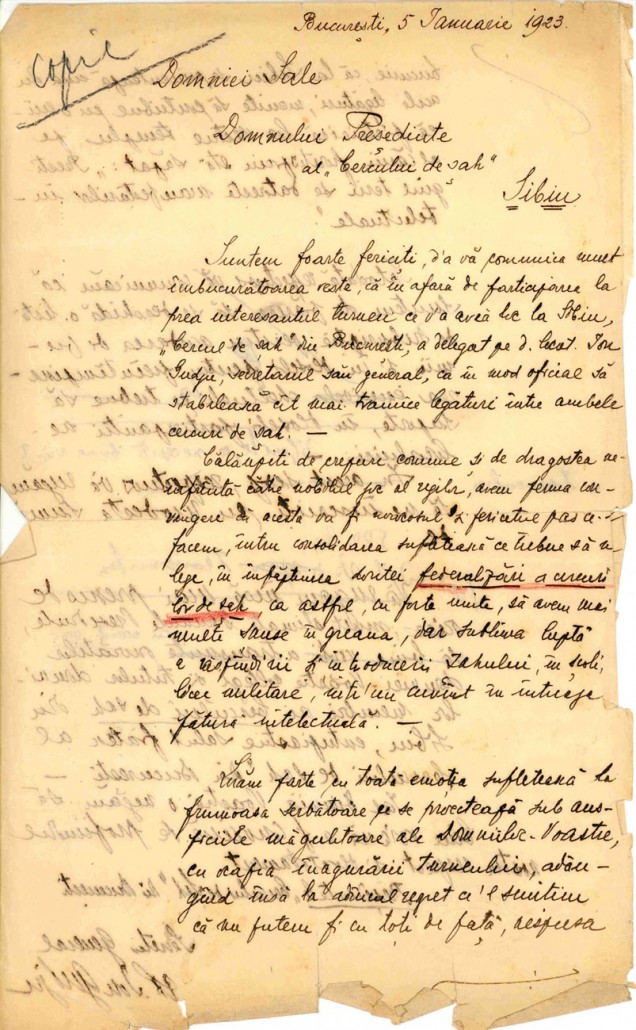 București, 5 Ianuarie 1923.
copie
Domniei Sale
Domnului Președinte
al „Cercului de sah"
Sibiu
Suntem foarte fericiți, d'a vă comunica mult
îmbucurătoarea veste, că în afară de participarea la
prea interesantul turneu ce v'a avea loc la Sibiu,
„Cercul de șah" din București, a delegat pe d. locot. Ion
Gudju, secretarul său general, ca în mod oficial să
stabilească cît mai trainice legături între ambele
cercuri de sah. —
Călăuziți de crezuri comune și de dragostea ne-
țărmuită către nobilul joc al regilor, avem ferma con-
vingere că acesta va fi norocosul și fericitul pas ce-l
facem, întru consolidarea sufletească ce trebue să
lege, în înfăptuirea federalizări a cercuri
lor de șah ca astfel, cu forțe unite, să avem mai
multe șanse în greaua, dar sublima luptă
a răspîndirii și introducerii șahului, în școli,
licee militare, într'un cuvînt în întreaga
pătură intelectuală. —
Luăm parte cu toată emoția sufletească la
frumoasa serbătoare ce se proectează sub aus-
piciile măgulitoare ale Domniilor-Voastre,
cu ocazia inaugurării turneului, adău-
gînd însă la adîncul regret ce'l simțim
că nu putem fi cu toți de față, nespusa